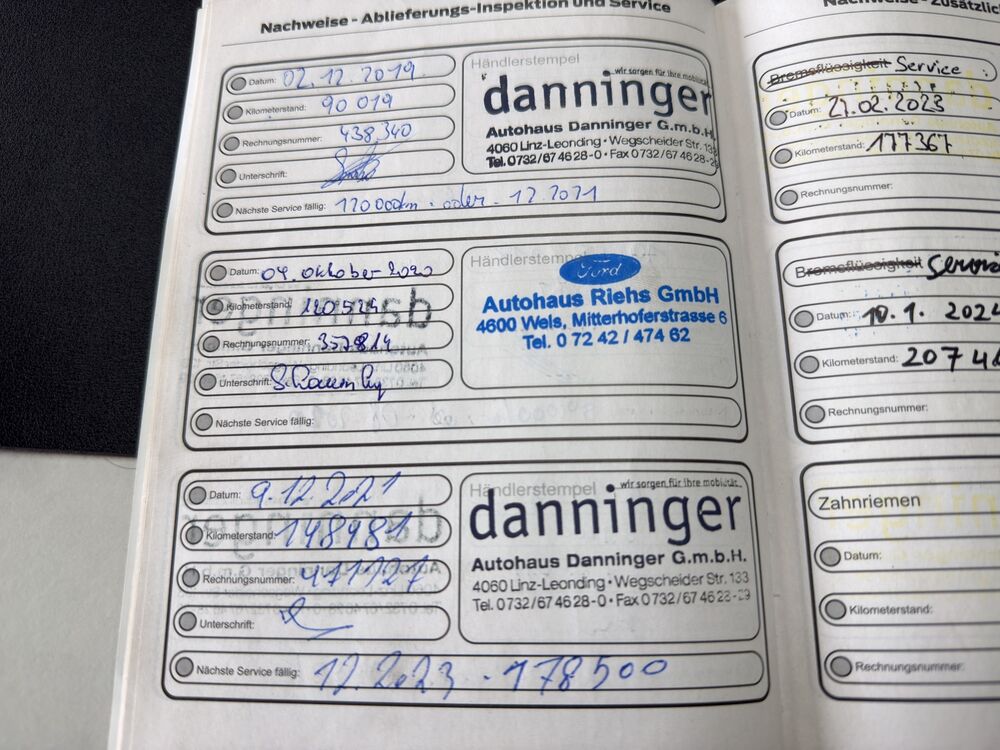 Nachweise - Ablieferungs-Inspektion und Service
Datum: 02.12.2019
Kilometerstand: 90 019
Rechnungsnummer: 438.340
Unterschrift:
Nächste Service fällig: 120000km - oder - 12.2021
Händlerstempel
wir sorgen für Ihre mobilität
danninger
Autohaus Danninger G.m.b.H.
4060 Linz-Leonding • Wegscheider Str. 133
Tel. 0732/67 46 28-0 • Fax 0732/67 46 28-29
Datum: 04. Oktober 2020
Kilometerstand: 120524
Rechnungsnummer: 357814
Unterschrift:
Nächste Service fällig:
Händlerstempel
Ford
Autohaus Riehs GmbH
4600 Wels, Mitterhoferstrasse 6
Tel. 0 72 42 / 474 62
Datum: 9.12.2021
Kilometerstand: 148981
Rechnungsnummer: 471727
Unterschrift:
Nächste Service fällig: 12.2023 - 178500
Händlerstempel
wir sorgen für Ihre mobilität.
danninger
Autohaus Danninger G.m.b.H.
4060 Linz-Leonding • Wegscheider Str. 133
Tel. 0732/67 46 28-0 • Fax 0732/67 46 28-29
Nachweise - Zusätzlic
Bremsflüssigkeit Service
Datum: 27.02.2023
Kilometerstand: 177367
Rechnungsnummer:
Bremsflüssigkeit Service
Datum: 10.1. 202
Kilometerstand: 2074
Rechnungsnummer:
Zahnriemen
Datum:
Kilometerstand:
Rechnungsnummer: